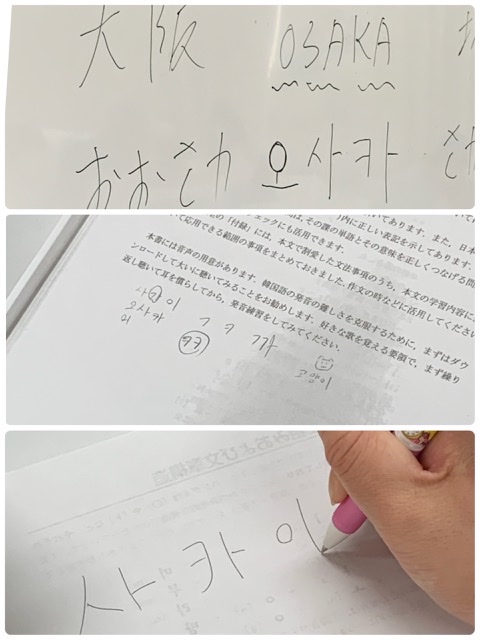 大阪 OSAKA
おおさか 오사카 さ
いてあります。また、日本
は、その課の単語とその意味を正しくつなげる問
内に正しい表記を示してあります。
ェックにも活用できます。
の「付録」には、本文で割愛した文法事項のうち、本文の学習内容に
て応用できる範囲の事項をまとめておきました。作文の時などに活用してください。
本書には音声の用意があります。韓国語の発音の難しさを克服するために、まずはダウ
ンロードして大いに聴いてみることをお勧めします。好きな歌を覚える要領で、まず繰り
返し聴いて耳を慣らしてから、発音練習をしてみてください。
사카이
오사카
ㄱ ㅋ
고양이
사카이